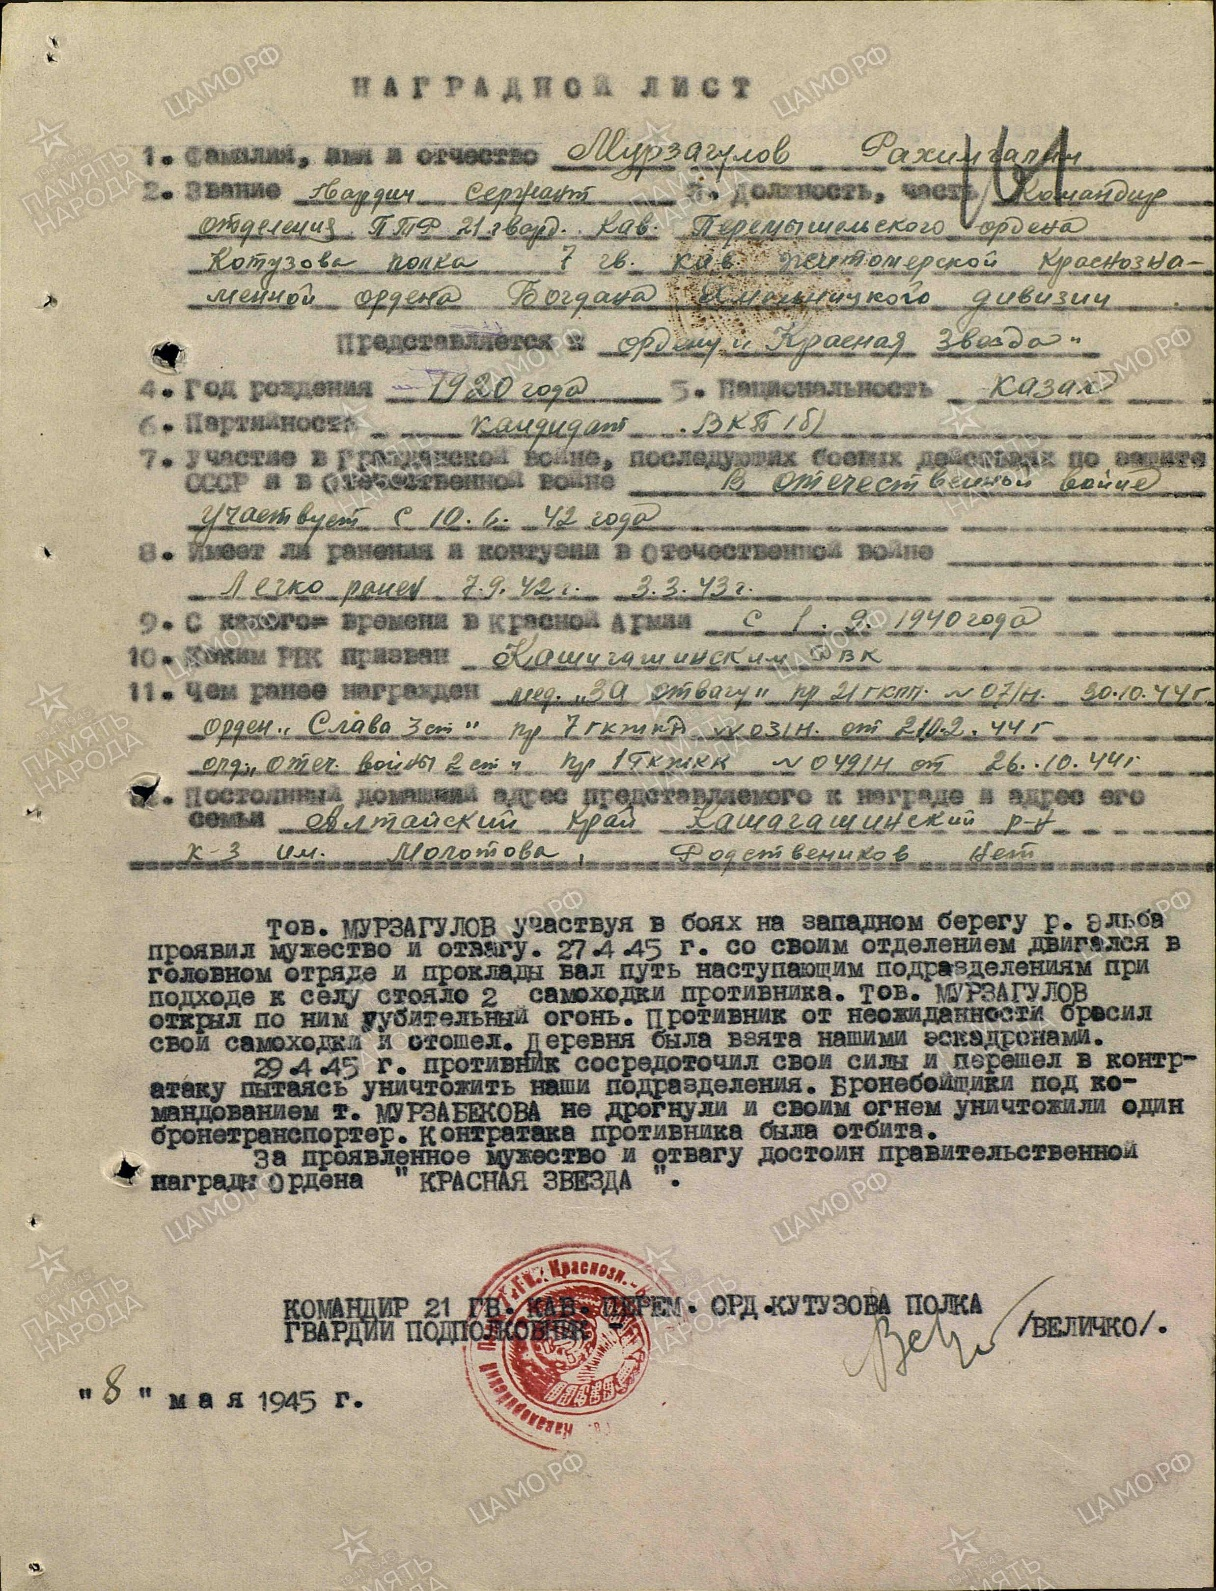 НАГРАДНОЙ ЛИСТ
1. Фамилия, имя и отчество Мурзагулов
2. Звание Гвардии сержант 3. Должность, часть Командир
отделения ПТР 21 гвард. Кав. Перемышельского ордена
Котузова полка 7 гв. кав. Житомерской Краснозна-
менной ордена Богдана Хмельницкого дивизии
Представляется к ордену „Красная Звезда"
4. Год рождения 1920 года 5. Национальность казах
6. Партийность кандидат ВКП(б)
7. Участие в гражданской войне, последующих боевых действиях по защите
СССР и в отечественной войне В отечественной войне
участвует с 10.6.42 года
8. Имеет ли ранения и контузии в отечественной войне
Легко ранен 7.9.42 г. 3.3.43 г.
9. С какого времени в Красной Армии с 1.9.1940 года
10. Каким РВК призван РВК
11. Чем ранее награжден мед. „За отвагу" пр 21 гкпп. №07/н. 30.10.44 г.
орден „Слава 3 ст" пр 7 гкжкд №031/н. от 44 г
орд „Отеч. войны 2 ст" пр 1 гкжкк №049/н от 26.10.44 г
12. Постоянный домашний адрес представляемого к награде и адрес его
семьи Алтайский Край Кашагашинский р-н
к-з им. Молотова, Родствеников нет
Тов. МУРЗАГУЛОВ участвуя в боях на западном берегу р. Эльба
проявил мужество и отвагу. 27.4.45 г. со своим отделением двигался в
головном отряде и прокладывал путь наступающим подразделениям при
подходе к селу стояло 2 самоходки противника. Тов. МУРЗАГУЛОВ
открыл по ним губительный огонь. Противник от неожиданности бросил
свои самоходки и отошел. Деревня была взята нашими эскадронами.
29.4.45 г. противник сосредоточил свои силы и перешел в контр-
атаку пытаясь уничтожить наши подразделения. Бронебойщики под ко-
мандованием т. МУРЗАБЕКОВА не дрогнули и своим огнем уничтожили один
бронетранспортер. Контратака противника была отбита.
За проявленное мужество и отвагу достоин правительственной
награды ордена " КРАСНАЯ ЗВЕЗДА ".
КОМАНДИР 21 ГВ. КАВ. ПЕРЕМ. ОРД.КУТУЗОВА ПОЛКА
ГВАРДИИ ПОДПОЛКОВНИК - /ВЕЛИЧКО/.
"8" мая 1945 г.